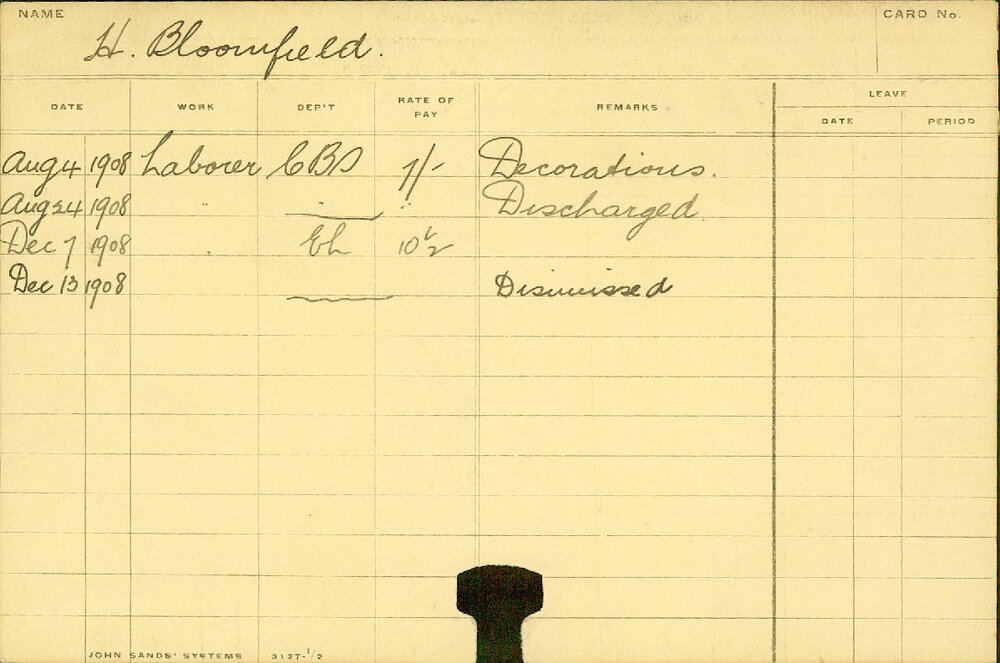 NAME H. Bloomfield. CARD No.
DATE WORK DEP'T RATE OF PAY REMARKS LEAVE
DATE PERIOD
Aug 4 1908 Laborer CBS 1/- Decorations.
Aug 24 1908 " " " Discharged.
Dec 7 1908 " Eh 10½
Dec 13 1908 Dismissed
JOHN SANDS' SYSTEMS 3127-1/2